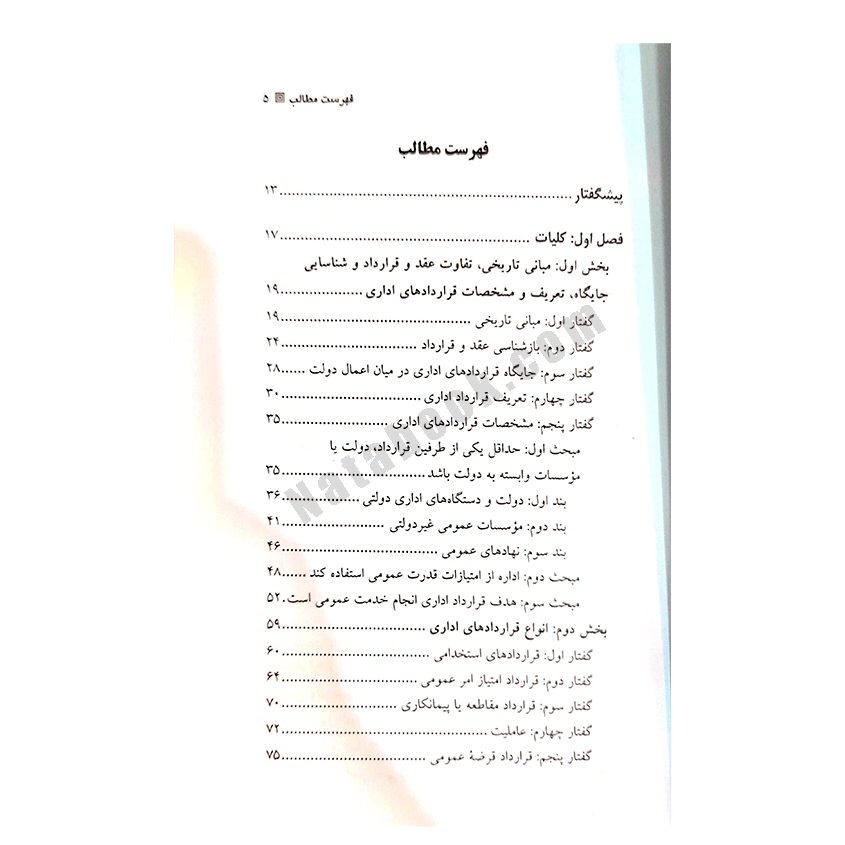 فهرست مطالب ۵
فهرست مطالب
پیشگفتار ۱۳
فصل اول: کلیات ۱۷
بخش اول: مبانی تاریخی، تفاوت عقد و قرارداد و شناسایی
جایگاه، تعریف و مشخصات قراردادهای اداری ۱۹
گفتار اول: مبانی تاریخی ۱۹
گفتار دوم: بازشناسی عقد و قرارداد ۲۴
گفتار سوم: جایگاه قراردادهای اداری در میان اعمال دولت ۲۸
گفتار چهارم: تعریف قرارداد اداری ۳۰
گفتار پنجم: مشخصات قراردادهای اداری ۳۵
مبحث اول: حداقل یکی از طرفین قرارداد، دولت یا
مؤسسات وابسته به دولت باشد ۳۵
بند اول: دولت و دستگاه‌های اداری دولتی ۳۶
بند دوم: مؤسسات عمومی غیردولتی ۴۱
بند سوم: نهادهای عمومی ۴۶
مبحث دوم: اداره از امتیازات قدرت عمومی استفاده کند ۴۸
مبحث سوم: هدف قرارداد اداری انجام خدمت عمومی است ۵۲
بخش دوم: انواع قراردادهای اداری ۵۹
گفتار اول: قراردادهای استخدامی ۶۰
گفتار دوم: قرارداد امتیاز امر عمومی ۶۴
گفتار سوم: قرارداد مقاطعه یا پیمانکاری ۷۰
گفتار چهارم: عاملیت ۷۲
گفتار پنجم: قرارداد قرضهٔ عمومی ۷۵
Natabook.com